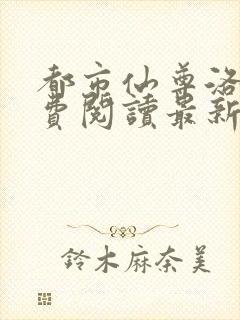 都市仙尊洛
費閱讀最新
鈴木麻奈美